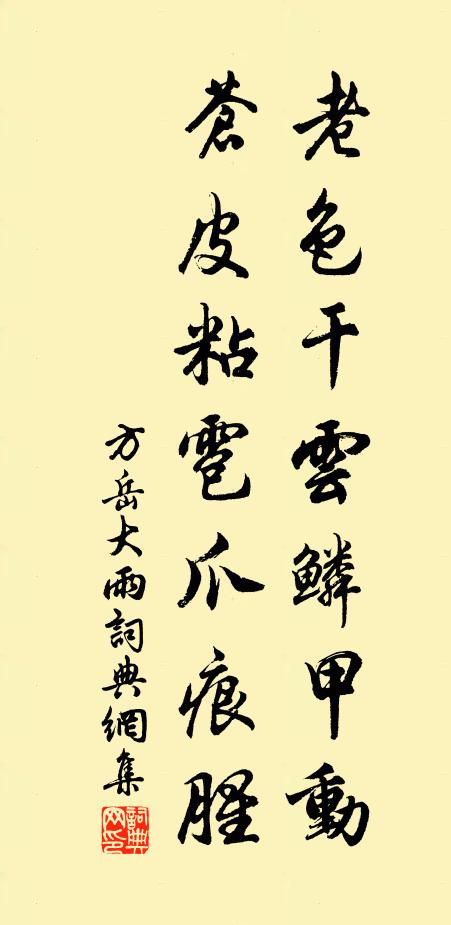 老色干雲鱗甲動
蒼皮粘雹爪痕腥
方岳大雨詞典網集
詞典網印